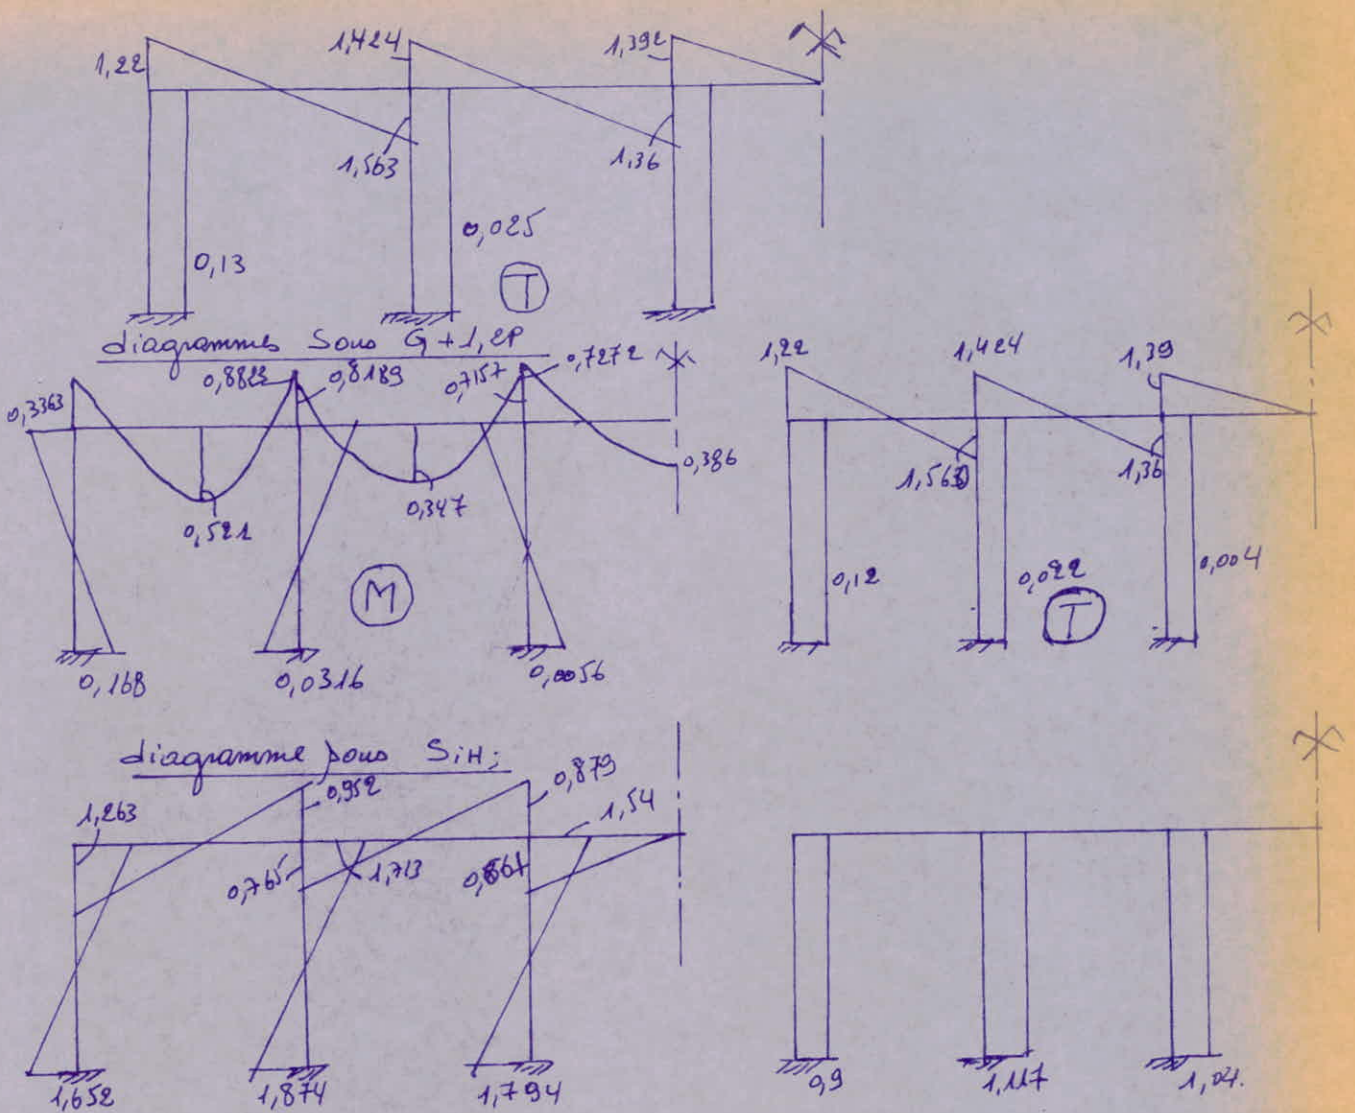 1,22
1,424
1,392
1,563
1,36
0,13
0,025
T
diagrammes Sous G+1,2P
0,3363
0,8822
0,8189
0,7157
0,7272
0,521
0,347
0,386
M
0,168
0,0316
0,0056
1,22
1,424
1,39
1,563
1,36
0,12
0,022
0,004
T
diagramme sous SiH;
1,263
0,952
0,879
1,54
0,765
1,713
1,652
1,874
1,794
0,9
1,117
1,04.